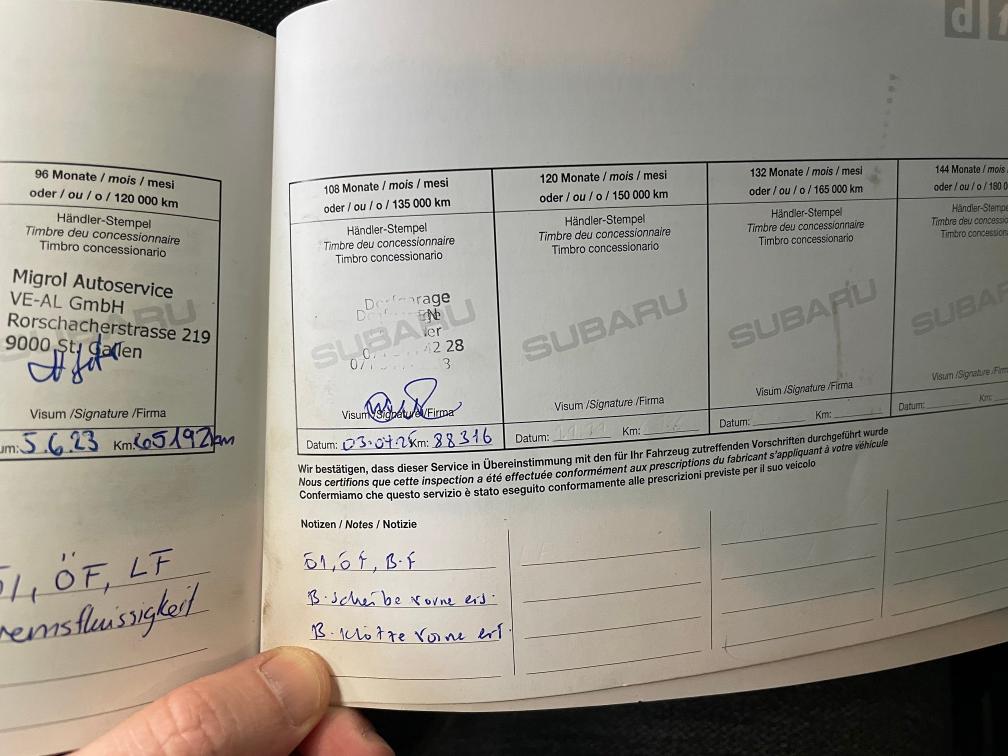 96 Monate / mois / mesi
oder / ou / o / 120 000 km
Händler-Stempel
Timbre deu concessionnaire
Timbro concessionario
SUBARU
Migrol Autoservice
VE-AL GmbH
Rorschacherstrasse 219
9000 St. Gallen
Visum /Signature /Firma
um: 5.6.23 Km: 65192km
ÖF, LF
remsflüssigkeit
108 Monate / mois / mesi
oder / ou / o / 135 000 km
Händler-Stempel
Timbre deu concessionnaire
Timbro concessionario
SUBARU
2 28
Visum /Signature /Firma
Datum: 03.07.25 Km: 88316
120 Monate / mois / mesi
oder / ou / o / 150 000 km
Händler-Stempel
Timbre deu concessionnaire
Timbro concessionario
SUBARU
Visum /Signature /Firma
Datum: Km:
132 Monate / mois / mesi
oder / ou / o / 165 000 km
Händler-Stempel
Timbre deu concessionnaire
Timbro concessionario
SUBARU
Visum /Signature /Firma
Datum: Km:
144 Monate / mois
oder / ou / o / 180 0
Händler-Stempe
Timbre deu concession
Timbro concession
SUBARU
Visum /Signature /Firm
Datum: Km:
Wir bestätigen, dass dieser Service in Übereinstimmung mit den für Ihr Fahrzeug zutreffenden Vorschriften durchgeführt wurde
Nous certifions que cette inspection a été effectuée conformément aux prescriptions du fabricant s'appliquant à votre véhicule
Confermiamo che questo servizio è stato eseguito conformemente alle prescrizioni previste per il suo veicolo
Notizen / Notes / Notizie
Öl, Öf, B.F
B.scheibe vorne ers.
B.klötze vorne ers.
d